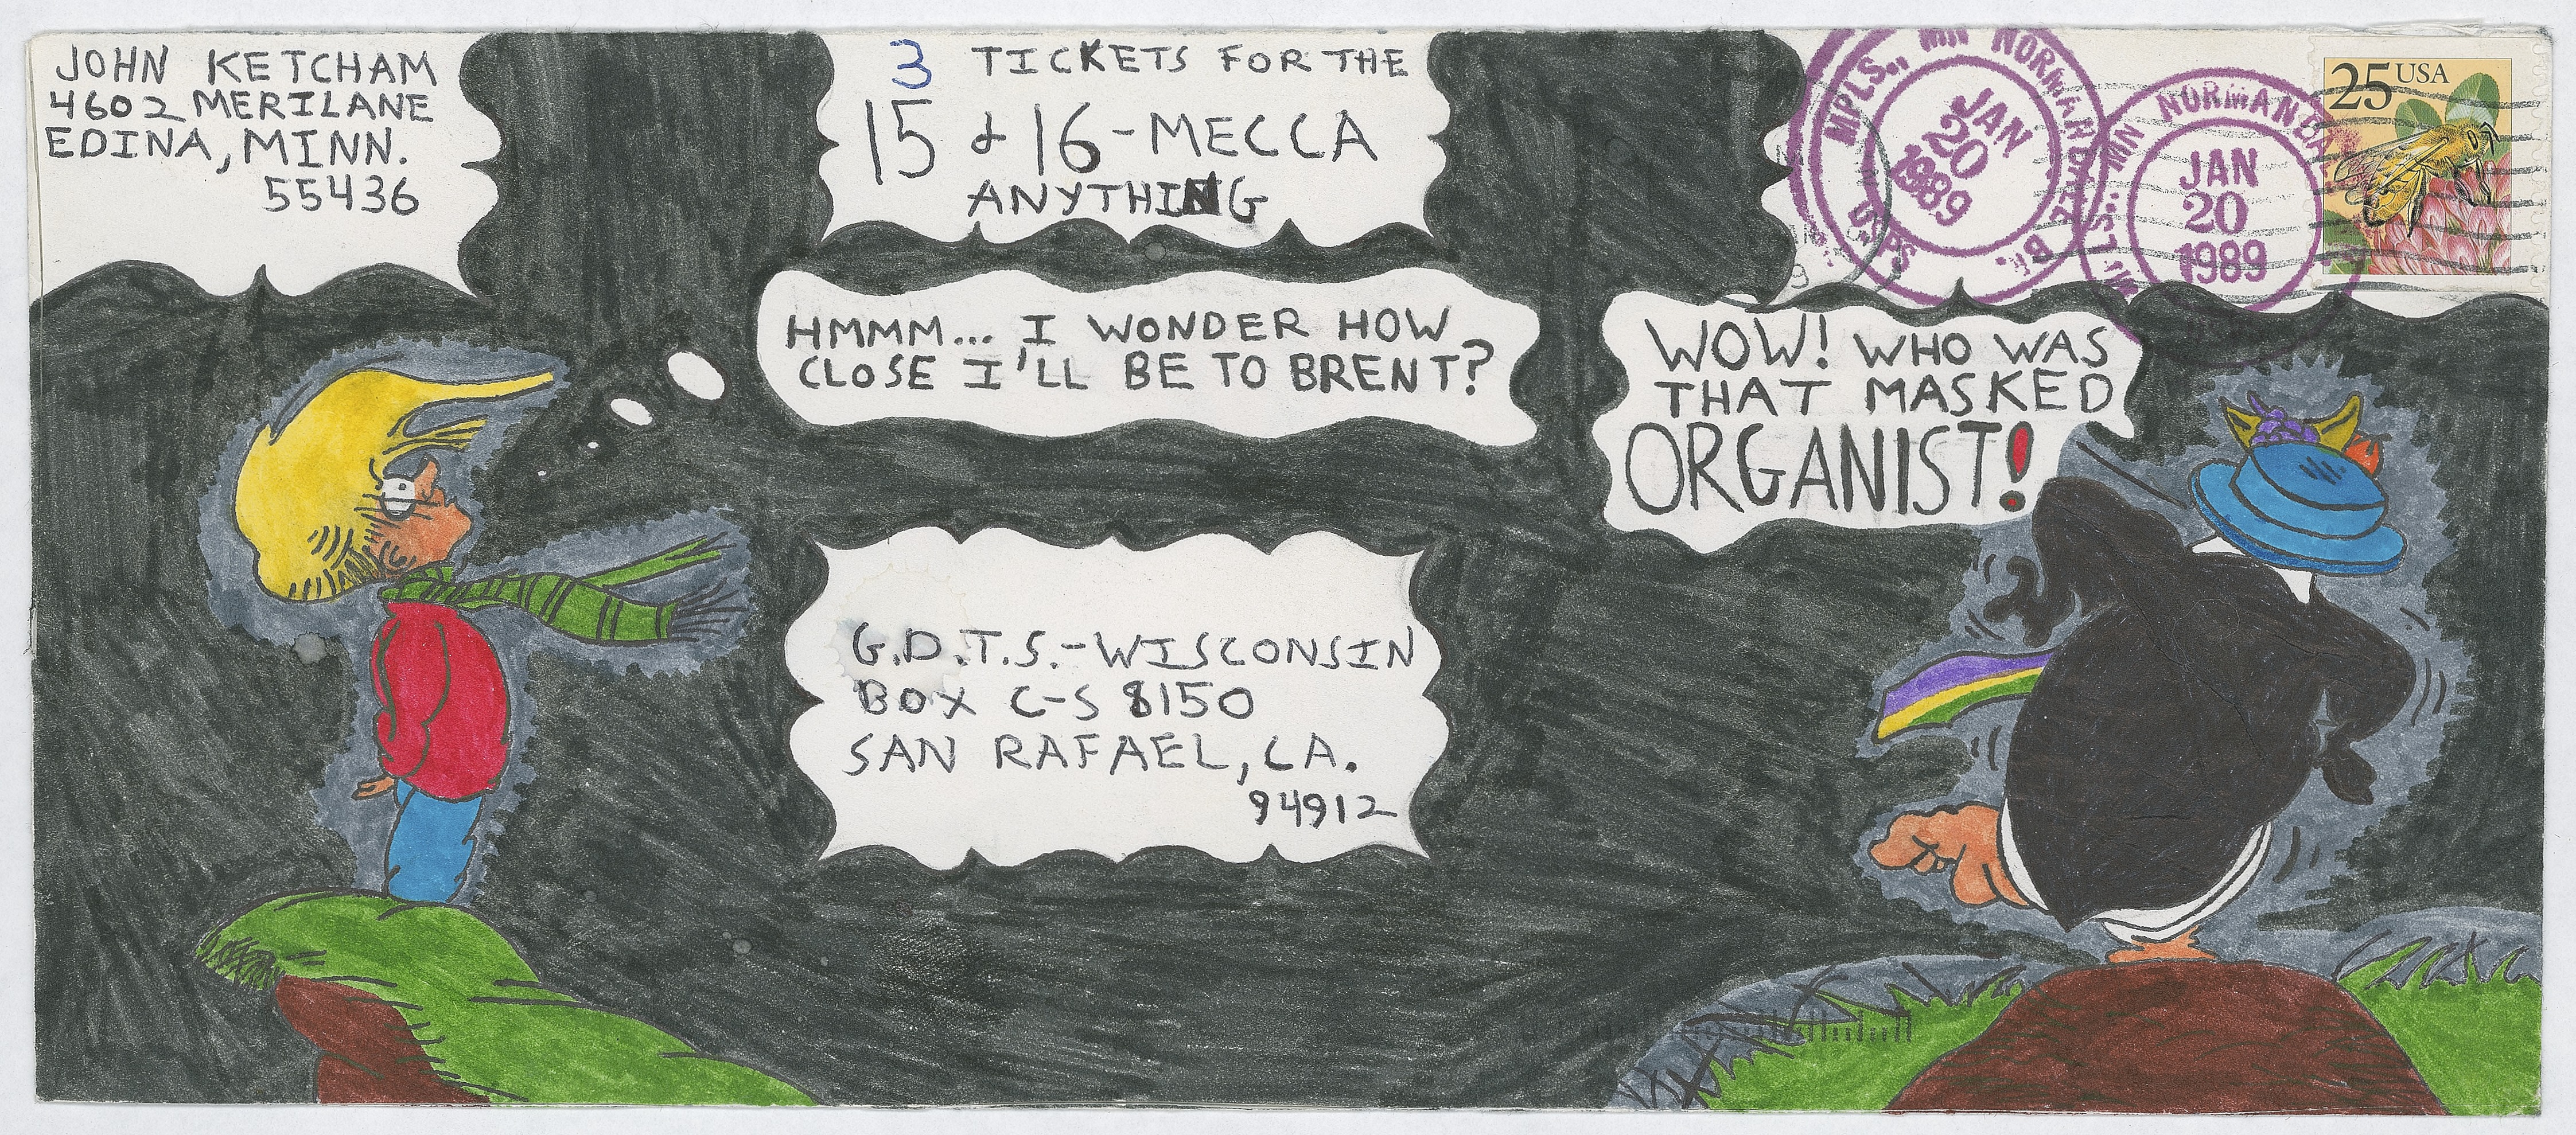 JOHN KETCHAM
4602 MERILANE
EDINA, MINN.
55436
3 TICKETS FOR THE
15 & 16 - MECCA
ANYTHING
MPLS., MN NORMANDALE
JAN
20
1989
USPS
MN NORMANDA
JAN
20
1989
25 USA
HMMM... I WONDER HOW
CLOSE I'LL BE TO BRENT?
WOW! WHO WAS
THAT MASKED
ORGANIST!
G.D.T.S. - WISCONSIN
BOX C-S 8150
SAN RAFAEL, CA.
94912